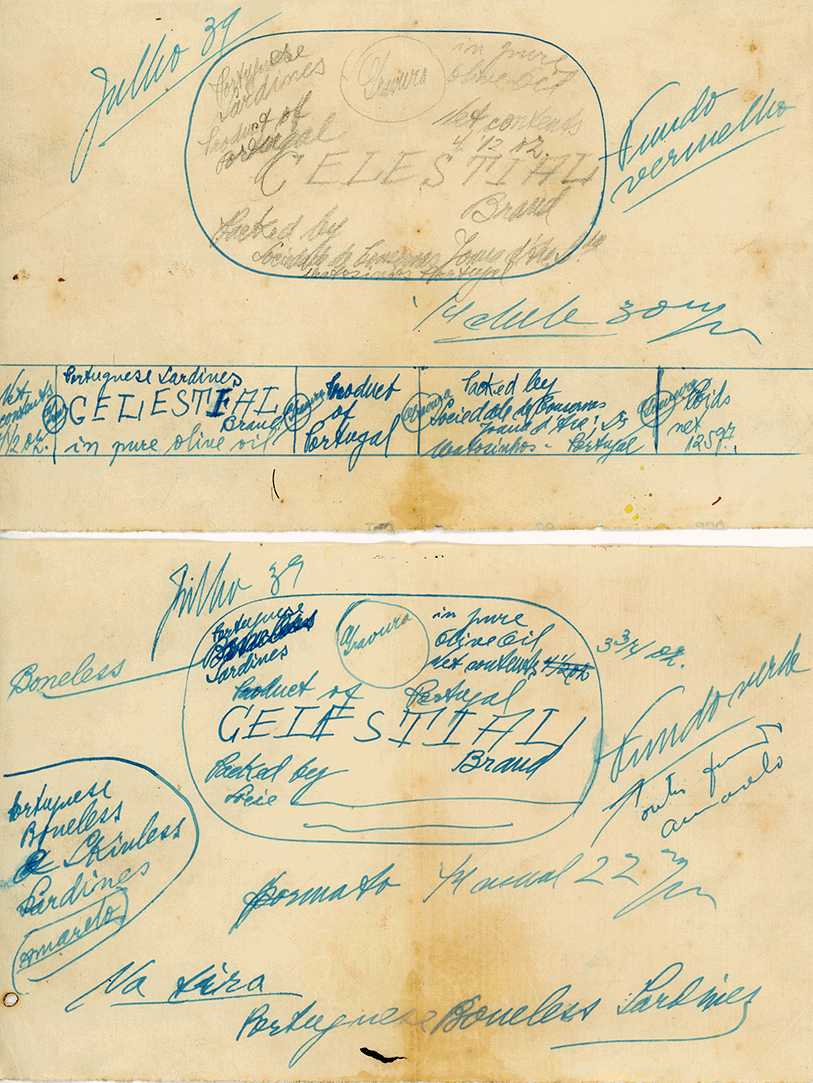 Julho 39
Portuguese
Sardines
Product of
Portugal
Gravura
in pure
olive oil
Net contents
4 1/2 oz.
CELESTIAL
Brand
Packed by
Sociedade de Conservas Joana d'Arc, Lda
Matosinhos Portugal
Fundo
vermelho
1/4 clube 30 m/m
Net
contents
4 1/2 oz.
Portuguese Sardines
CELESTIAL
Brand
in pure olive oil
Gravura
Product
of
Portugal
Gravura
Packed by
Sociedade de Conservas
Joana d'Arc, Lda
Matosinhos - Portugal
Gravura
Poids
net
125 gr.
Julho 39
Boneless
Portuguese
Boneless
Sardines
Gravura
in pure
olive oil
Net contents 4 1/2 oz
3 3/4 oz.
Product of Portugal
CELESTIAL
Brand
Packed by
Socie
Fundo verde
outro fundo
amarelo
Portuguese
Boneless
& Skinless
Sardines
amarelo
formato 1/4 usual 22 m/m
Na tira
Portuguese Boneless Sardines